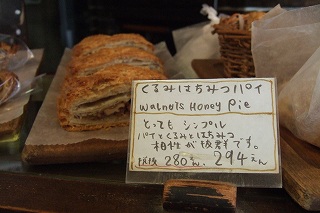 くるみはちみつパイ
walnuts Honey Pie
とっても シンプル
パイとくるみとはちみつ
相性が抜群です。
税抜 280えん 294えん